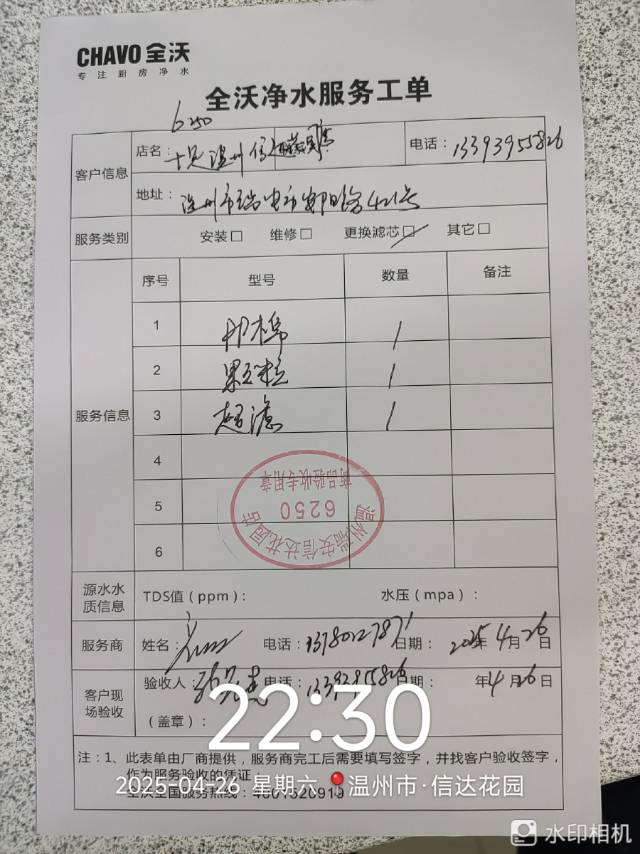 CHAVO 全沃
专注厨房净水
全沃净水服务工单
6250
客户信息
店名：
温州信达花园店
电话：13393955826
地址：温州市瑞安市
421号
服务类别
安装□ 维修□ 更换滤芯□ 其它□
服务信息
序号 型号 数量 备注
1 PP棉 1
2 果粒 1
3 超滤 1
4
5
6
温州瑞安信达花园店
6250
商品验收专用章
源水水质信息
TDS值（ppm）： 水压（mpa）：
服务商
姓名： 电话：13780127871 日期：2025年4月26日
客户现场验收
验收人： 电话： 日期： 年4月26日
（盖章）：
22:30
注：1、此表单由厂商提供，服务商完工后需要填写签字，并找客户验收签字，
作为服务验收的凭证
2025-04-26 星期六 温州市·信达花园
全沃全国服务热线：4001520910
水印相机